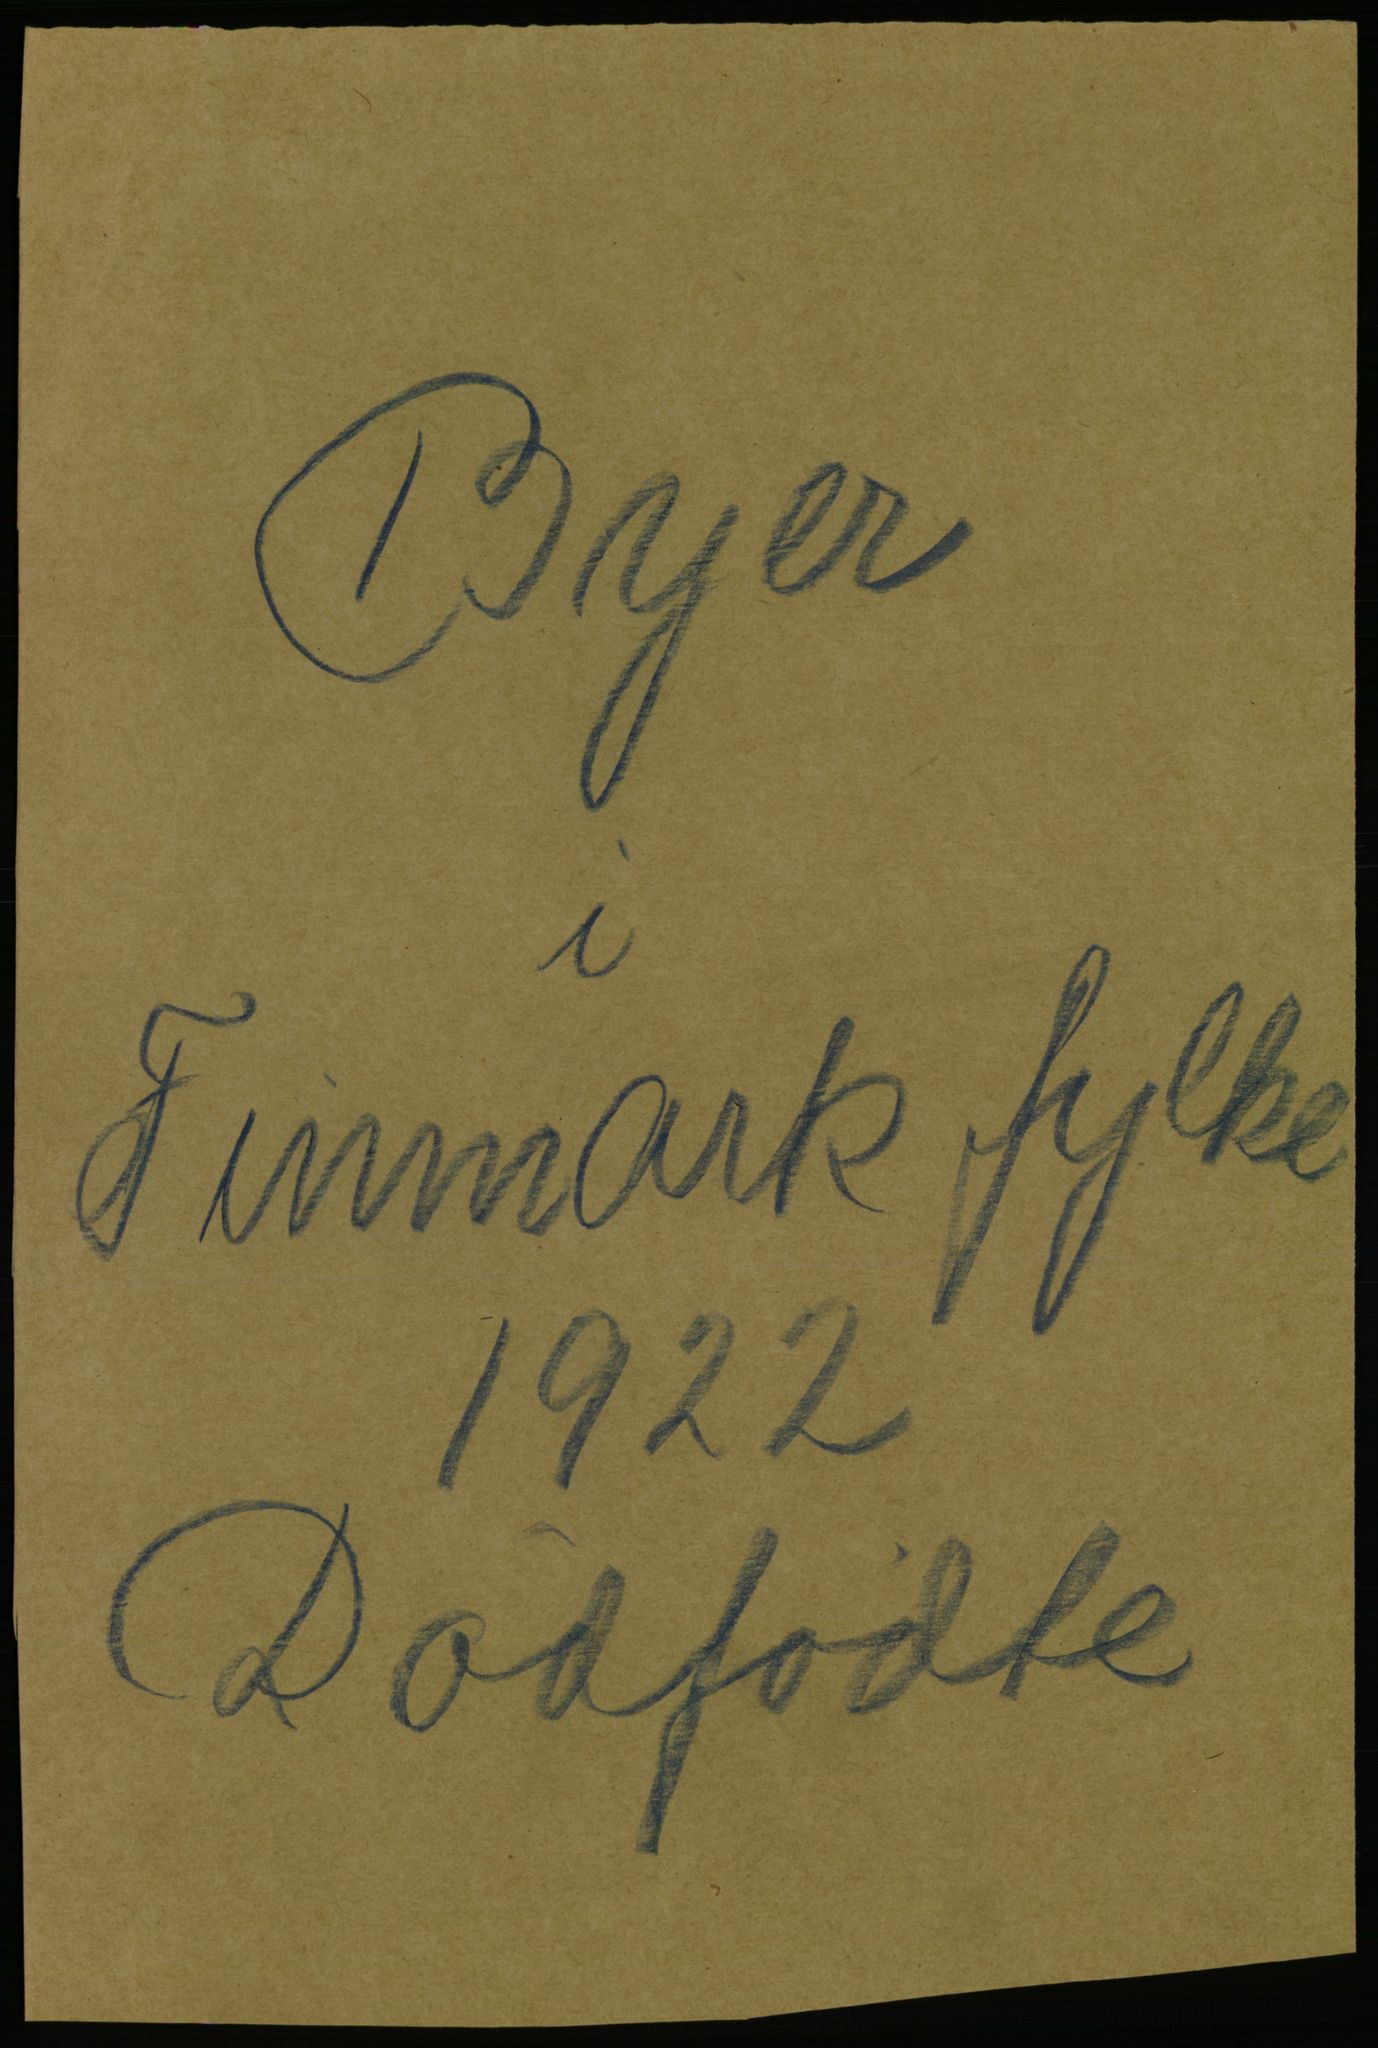 Byer
i
Finmark fylke
1922
Dødfødte